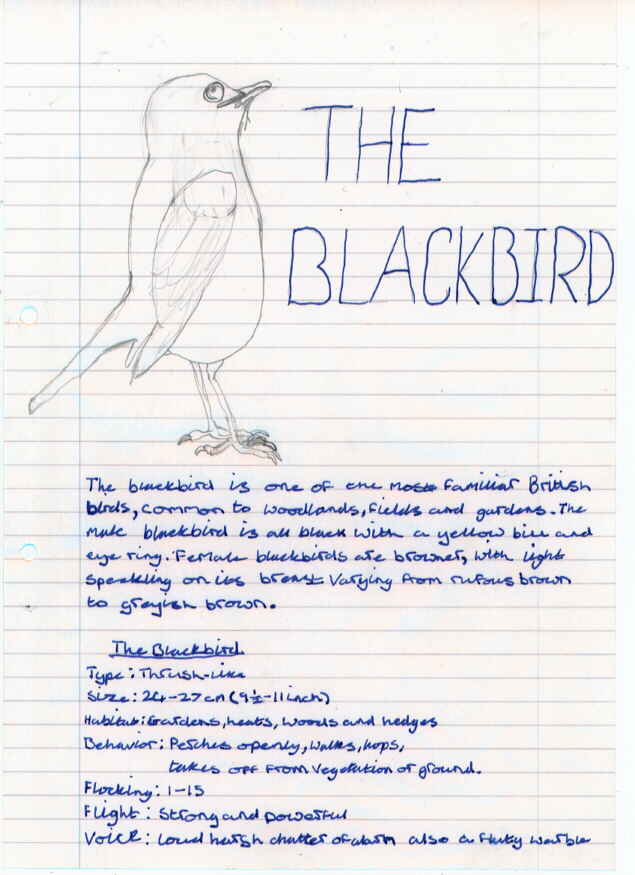 THE
BLACKBIRD
The blackbird is one of the most familiar British
birds, common to woodlands, fields and gardens. The
male blackbird is all black with a yellow bill and
eye ring. Female blackbirds are browner, with light
speckling on its breast varying from rufous brown
to greyish brown.
The Blackbird
Type: Thrush-like
Size: 24-27cm (9½-11inch)
Habitat: Gardens, heaths, woods and hedges
Behavior: Perches openly, walks, hops,
takes off from vegetation or ground.
Flocking: 1-15
Flight: Strong and powerful
Voice: loud harsh chatter of alarm also a fluty warble